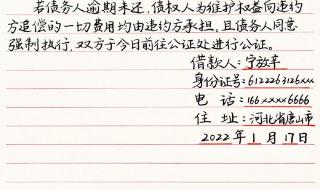 若债务人逾期未还,债权人为维护权益向违约
方追偿的一切费用均由违约方承担,且债务人同意
强制执行,双方于今日前往公证处进行公证。
借款人:宁放牢
身份证号:6122263126xxx
电 话:166xxxx6666
住 址:河北省唐山市
2022年1月17日